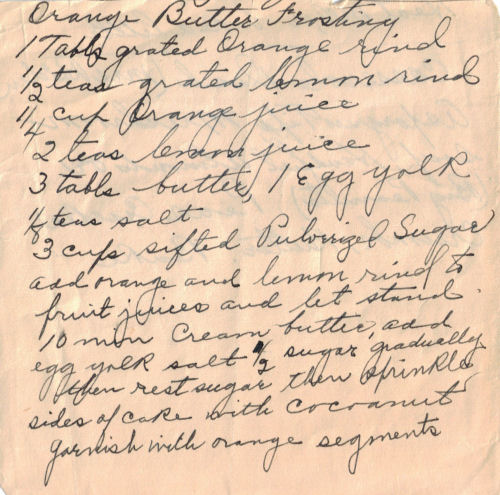 Orange Butter Frosting
1 Tabls grated Orange rind
1/2 teas grated lemon rind
1/4 cup Orange juice
2 teas lemon juice
3 tabls butter, 1 Egg yolk
1/8 teas salt
3 cups sifted Pulverized Sugar
add orange and lemon rind to
fruit juices and let stand
10 min Cream butter, add
egg yolk salt 1/2 sugar gradually
then rest sugar then sprinkle
sides of cake with cocoanut
garnish with orange segments